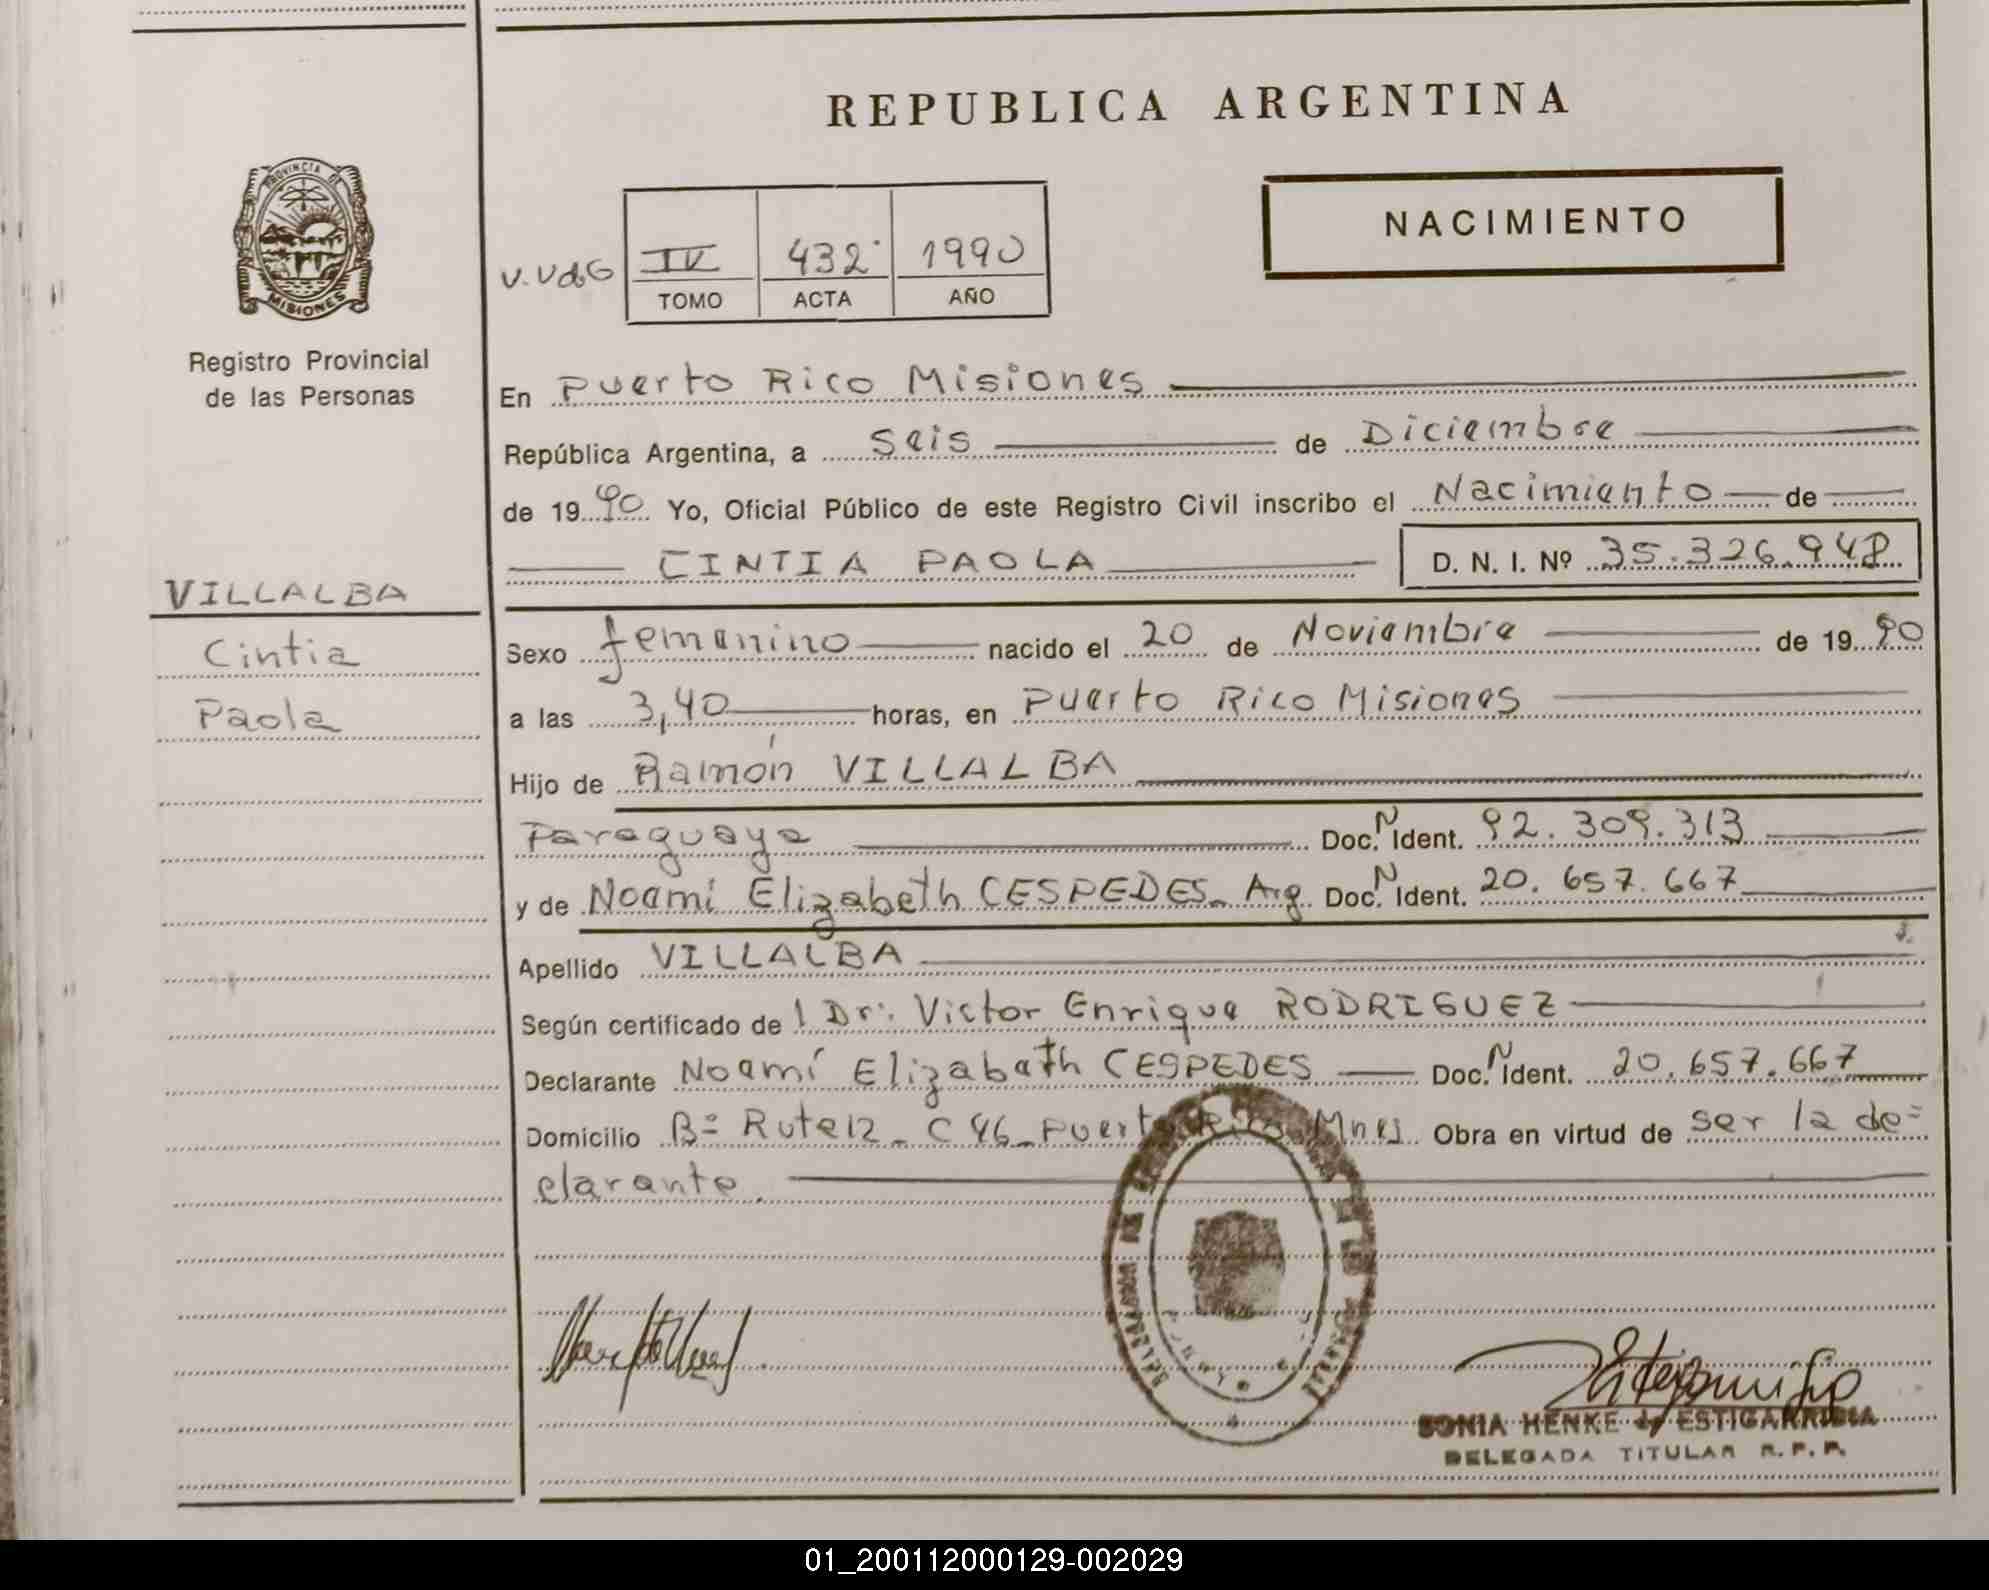 REPUBLICA ARGENTINA
PROVINCIA DE
MISIONES
Registro Provincial
de las Personas
NACIMIENTO
V.VdeG
IV 432 1990
TOMO ACTA AÑO
En Puerto Rico Misiones
República Argentina, a Seis de Diciembre
de 1990 Yo, Oficial Público de este Registro Civil inscribo el Nacimiento de
CINTIA PAOLA D. N. I. Nº 35.326.948
VILLALBA
Cintia
Paola
Sexo femenino nacido el 20 de Noviembre de 1990
a las 3,40 horas, en Puerto Rico Misiones
Hijo de Ramón VILLALBA
Paraguaya Doc. N Ident. 92.309.313
y de Noemí Elizabeth CESPEDES. Arg. Doc. N Ident. 20.657.667
Apellido VILLALBA
Según certificado de l Dr: Victor Enrique RODRIGUEZ
Declarante Noemí Elizabeth CESPEDES Doc. N Ident. 20.657.667
Domicilio Bº Ruta 12 - C 46 - Puerto Rico Mnes Obra en virtud de ser la de=
clarante.
SONIA HENKE de ESTIGARRIBIA
DELEGADA TITULAR R. P. P.
01_200112000129-002029